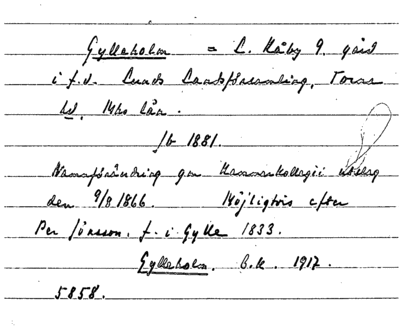 Gylleholm = L. Råby 9, gård
i f.d. Lunds Landsförsamling, Torna
hd, Mhs län.
fb 1881.
Namnförändring gm Kammarkollegii utslag
den 9/8 1866. Möjligtvis efter
Per Jönsson, f. i Gylle 1833.
Gylleholm. B.K. 1917.
5858.